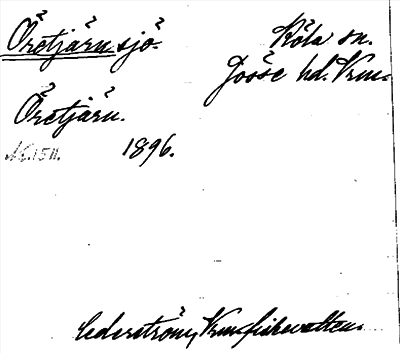 Öretjärn sjö.
Köla sn.
Jösse hd. Vrm.
Öretjärn.
1896.
Cederström, Vrm. fiskevatten.